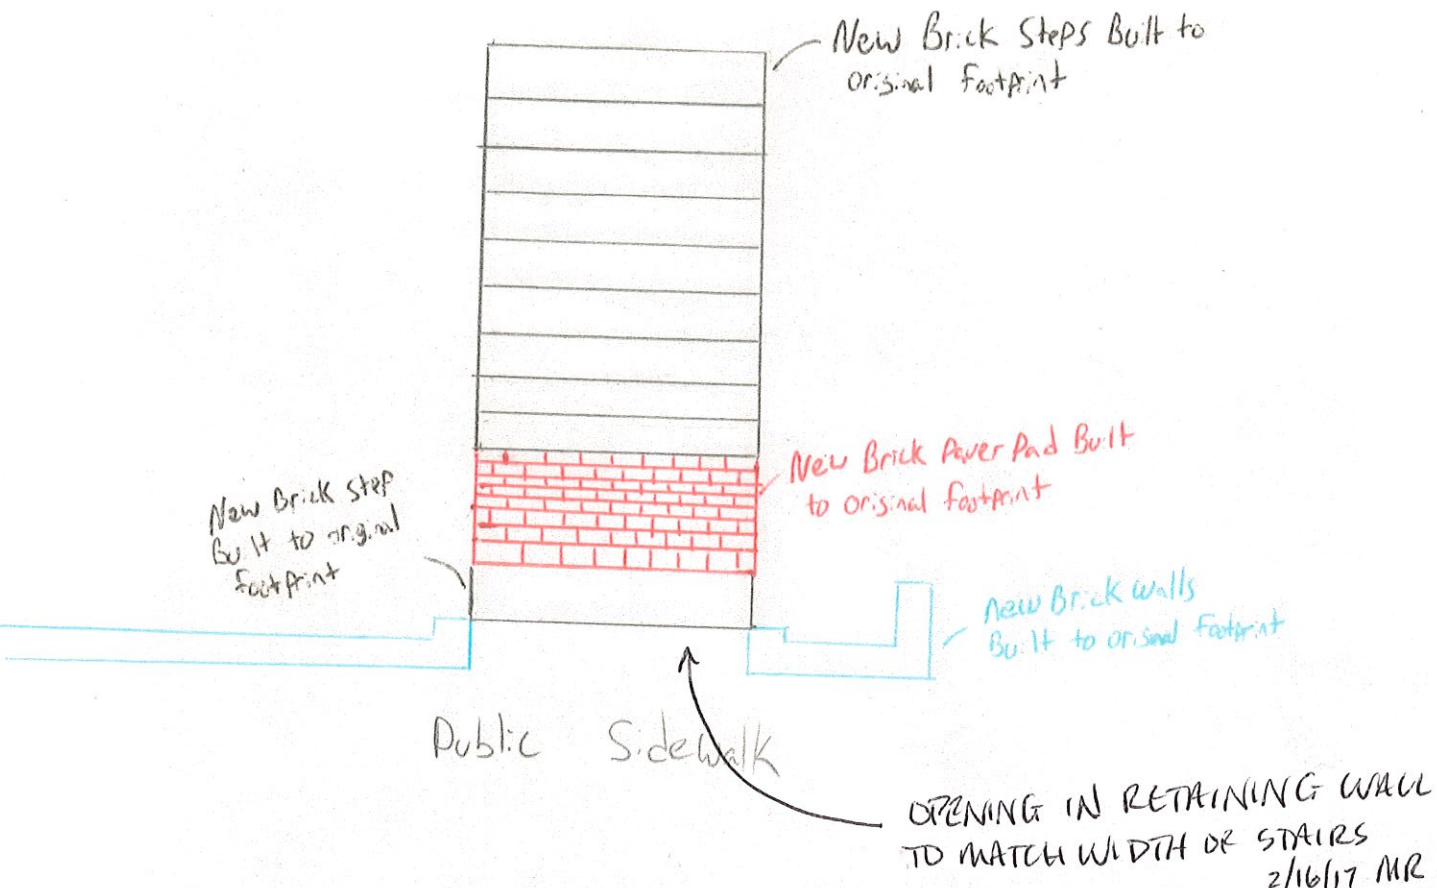 New Brick Steps Built to
original footprint
New Brick Paver Pad Built
to original footprint
New Brick step
Built to orginal
footprint
New Brick walls
Built to original footprint
Public Sidewalk
OPENING IN RETAINING WALL
TO MATCH WIDTH OF STAIRS
2/16/17 MR